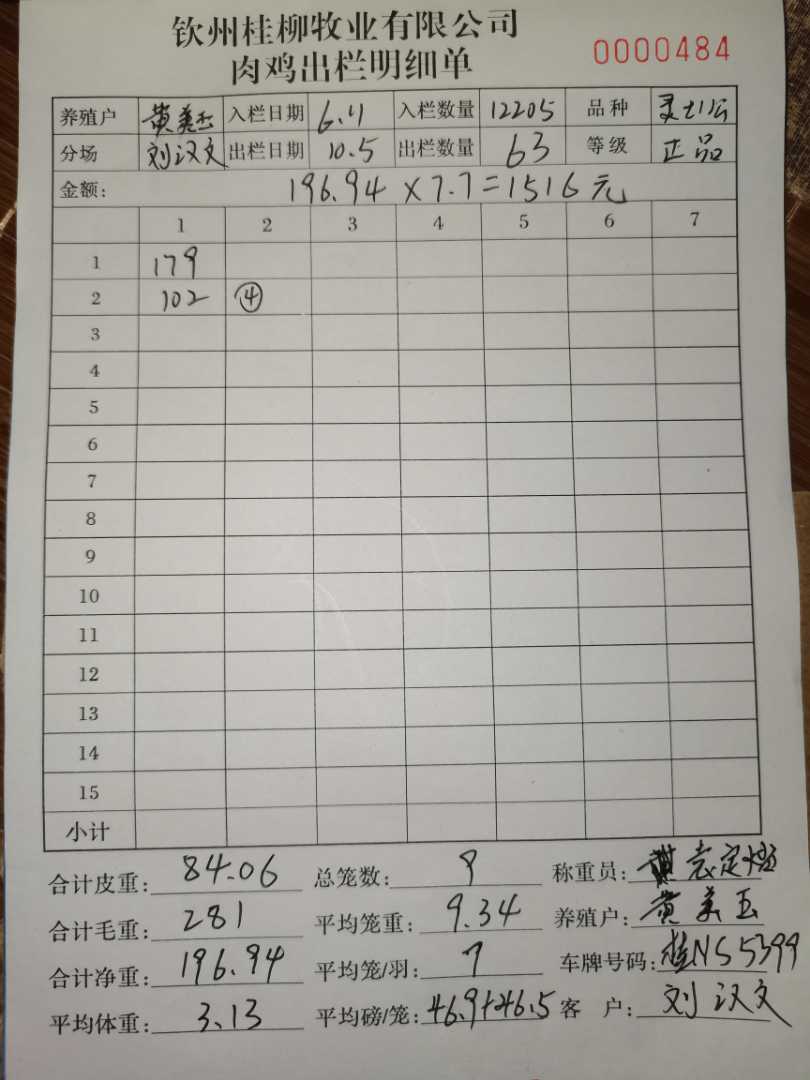 钦州桂柳牧业有限公司
肉鸡出栏明细单
0000484
养殖户 黄美玉 入栏日期 6.11 入栏数量 12205 品种 灵土公
分场 刘汉文 出栏日期 10.5 出栏数量 63 等级 正品
金额: 196.94×7.7=1516元
1 2 3 4 5 6 7
1 179
2 102 ④
3
4
5
6
7
8
9
10
11
12
13
14
15
小计
合计皮重: 84.06 总笼数: 9 称重员: 袁定
合计毛重: 281 平均笼重: 9.34 养殖户: 黄美玉
合计净重: 196.94 平均笼/羽: 7 车牌号码: 桂NS5399
平均体重: 3.13 平均磅/笼: 46.9+46.5 客户: 刘汉文